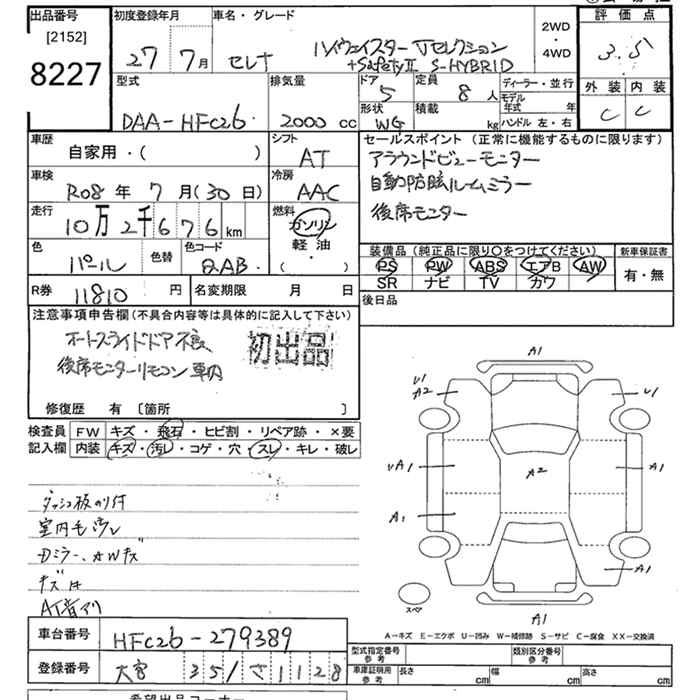 出品番号
[2152]
8227
初度登録年月
27年 7月
車名・グレード
セレナ
ハイウェイスター Vセレクション
+SafetyⅡ S-HYBRID
2WD
・
4WD
評価点
3.5
外装 内装
C C
型式
DAA-HFC26
排気量
2000 cc
ドア
5
形状
WG
定員
8 人
積載
kg
ディーラー・並行
モデル年式 年
ハンドル 左・右
車歴
自家用・( )
シフト
AT
車検
R08年 7月(30日)
冷房
AAC
走行
10万2千676km
燃料
ガソリン
軽油
・
( )
色
パール
色替
色コード
QAB
R券
11810円
名変期限 月 日
セールスポイント(正常に機能するものに限ります)
アラウンドビューモニター
自動防眩ルームミラー
後席モニター
装備品(純正品に限り○をつけてください)
PS PW ABS エアB AW
SR ナビ TV カワ
新車保証書
有・無
後日品
注意事項申告欄(不具合内容等は具体的に記入して下さい)
オートスライドドア不良
後席モニターリモコン 車内
初出品
修復歴 有 〔箇所 〕
検査員
記入欄
FW キズ・飛石・ヒビ割・リペア跡・×要
内装 キズ・汚レ・コゲ・穴・スレ・キレ・破レ
ダッシュ板のり付
室内モケスレ
Dミラー、AWキズ
キズ
A1
U1
A2
U1
UA1
A2
A1
A1
A1
A1
スペア
A-キズ E-エクボ U-凹み W-補修跡 S-サビ C-腐食 XX-交換済
車台番号
HFC26-279389
登録番号
大宮 35/さ1128
型式指定番号
参考
類別区分番号
参考
車庫証明用
参考
長さ cm
幅 cm
高さ cm
希望出品コーナー